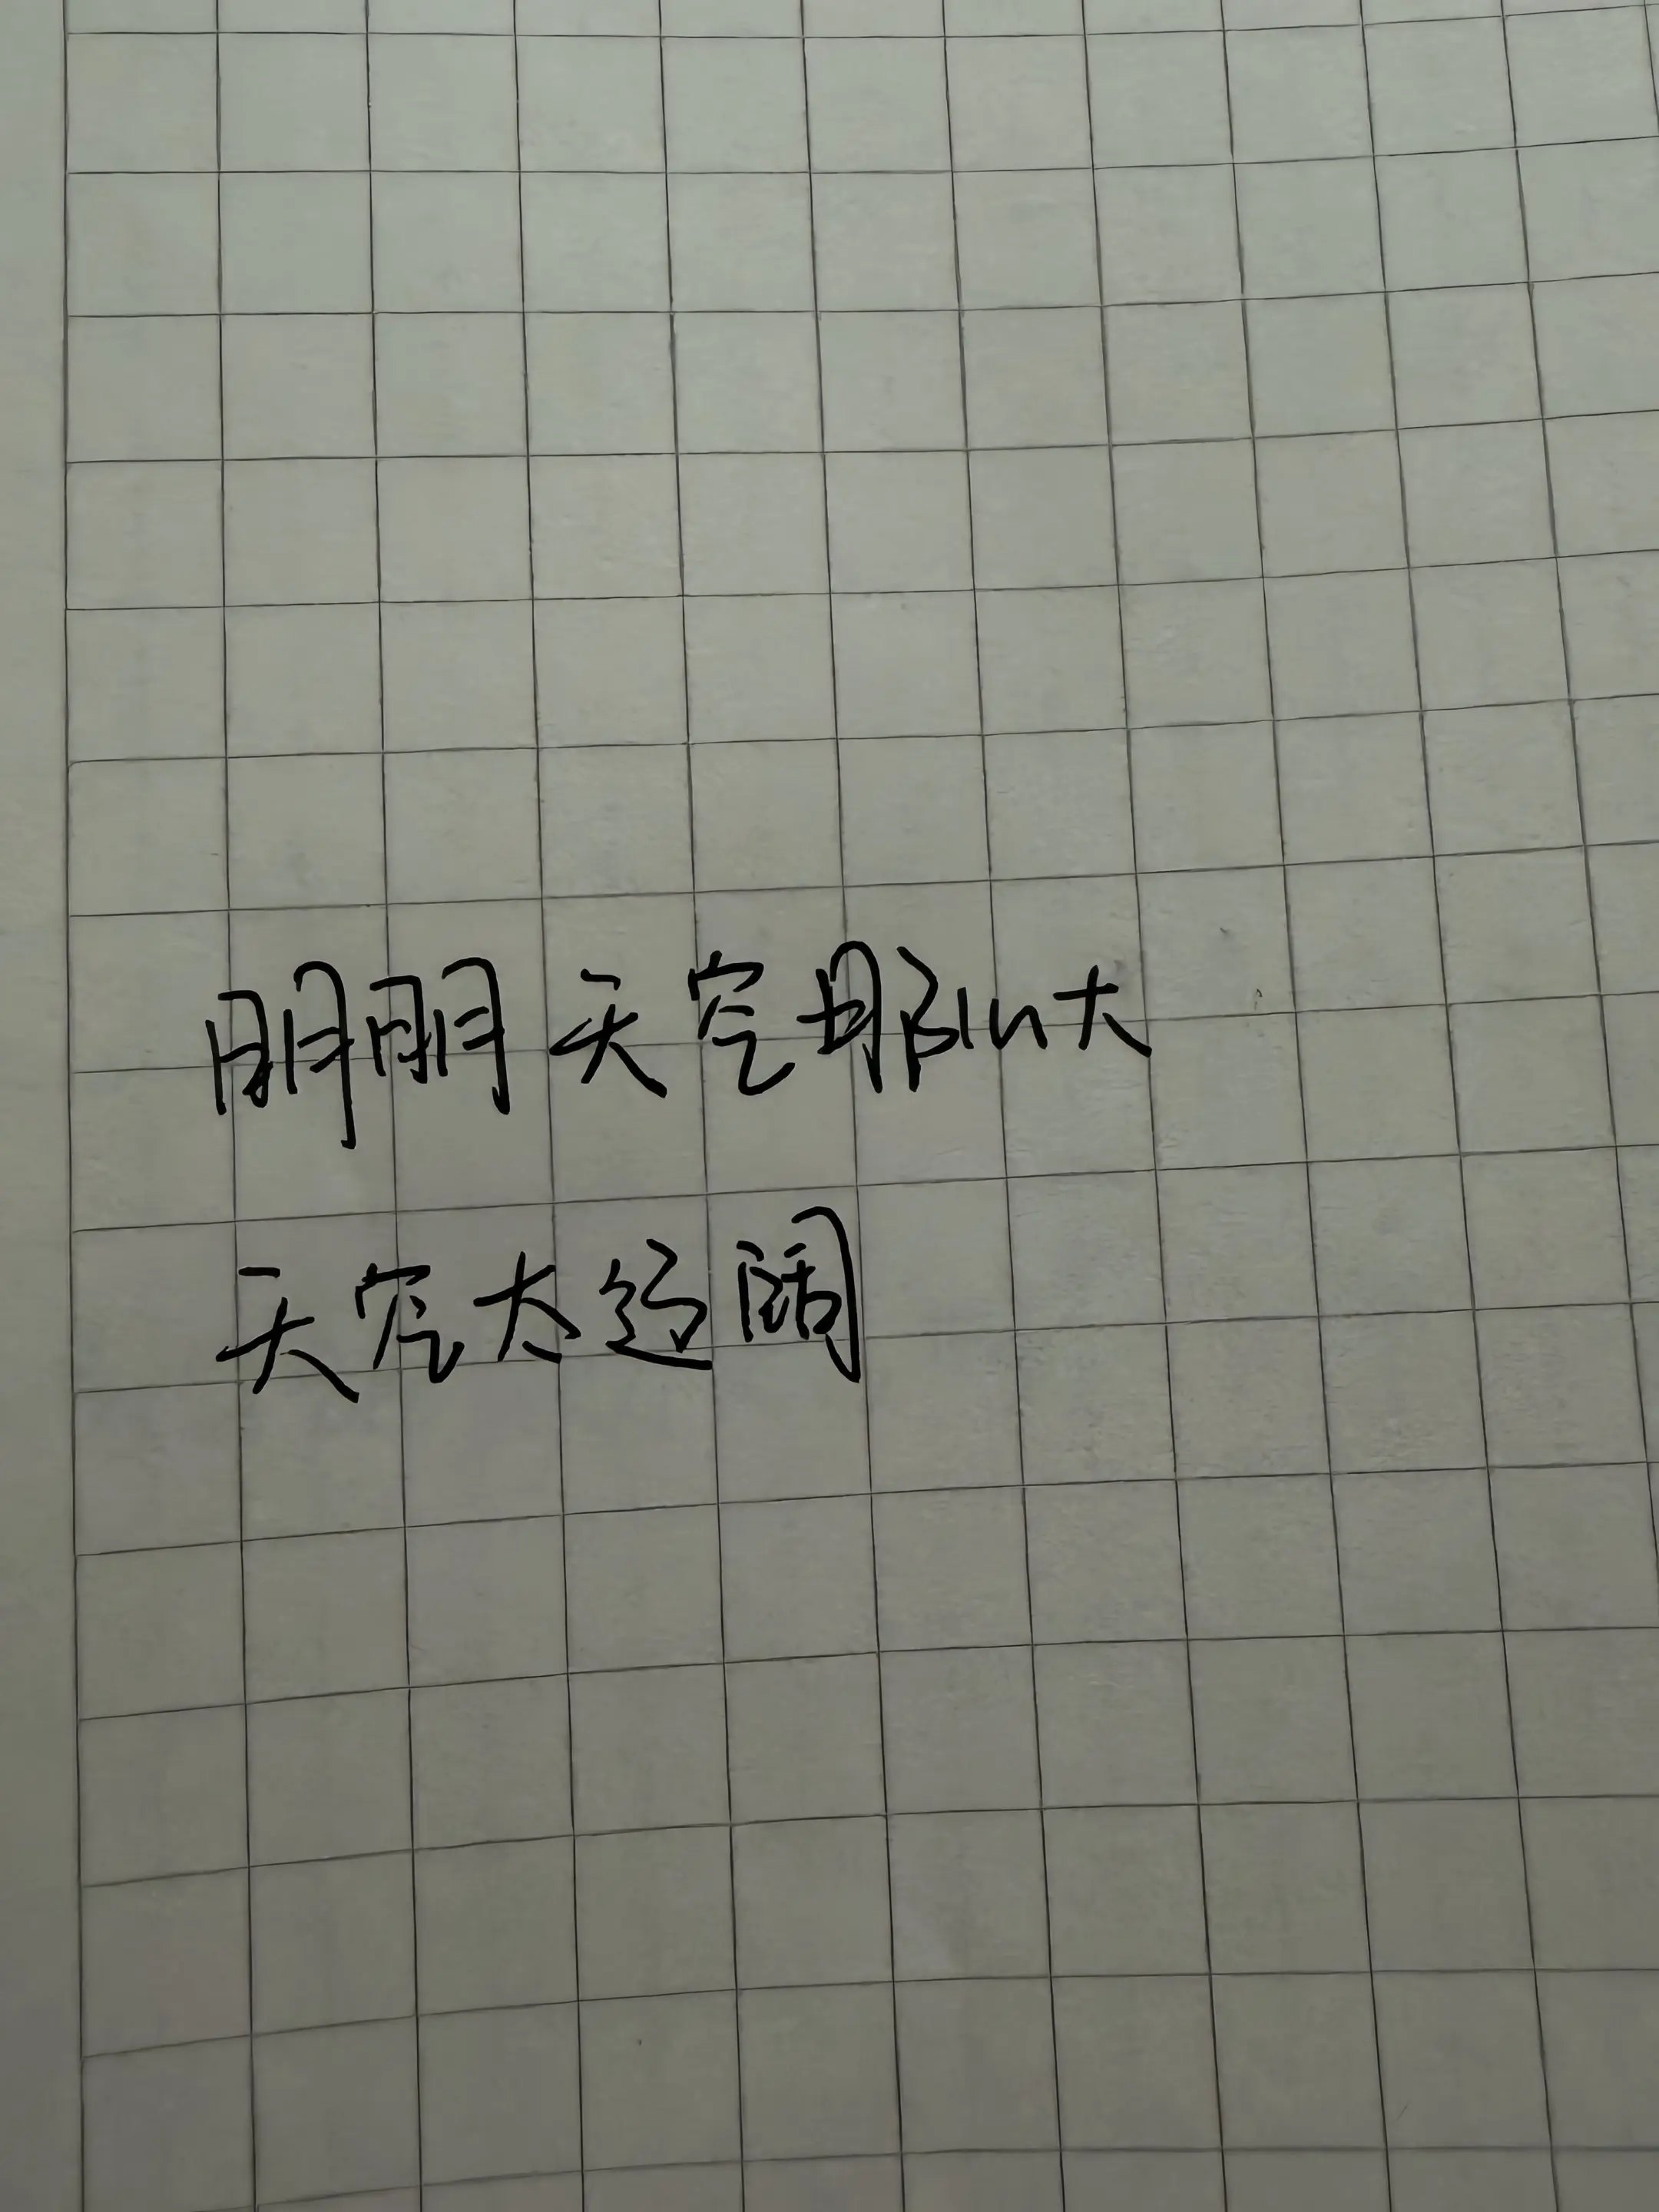 明明天空那么大
天空太辽阔